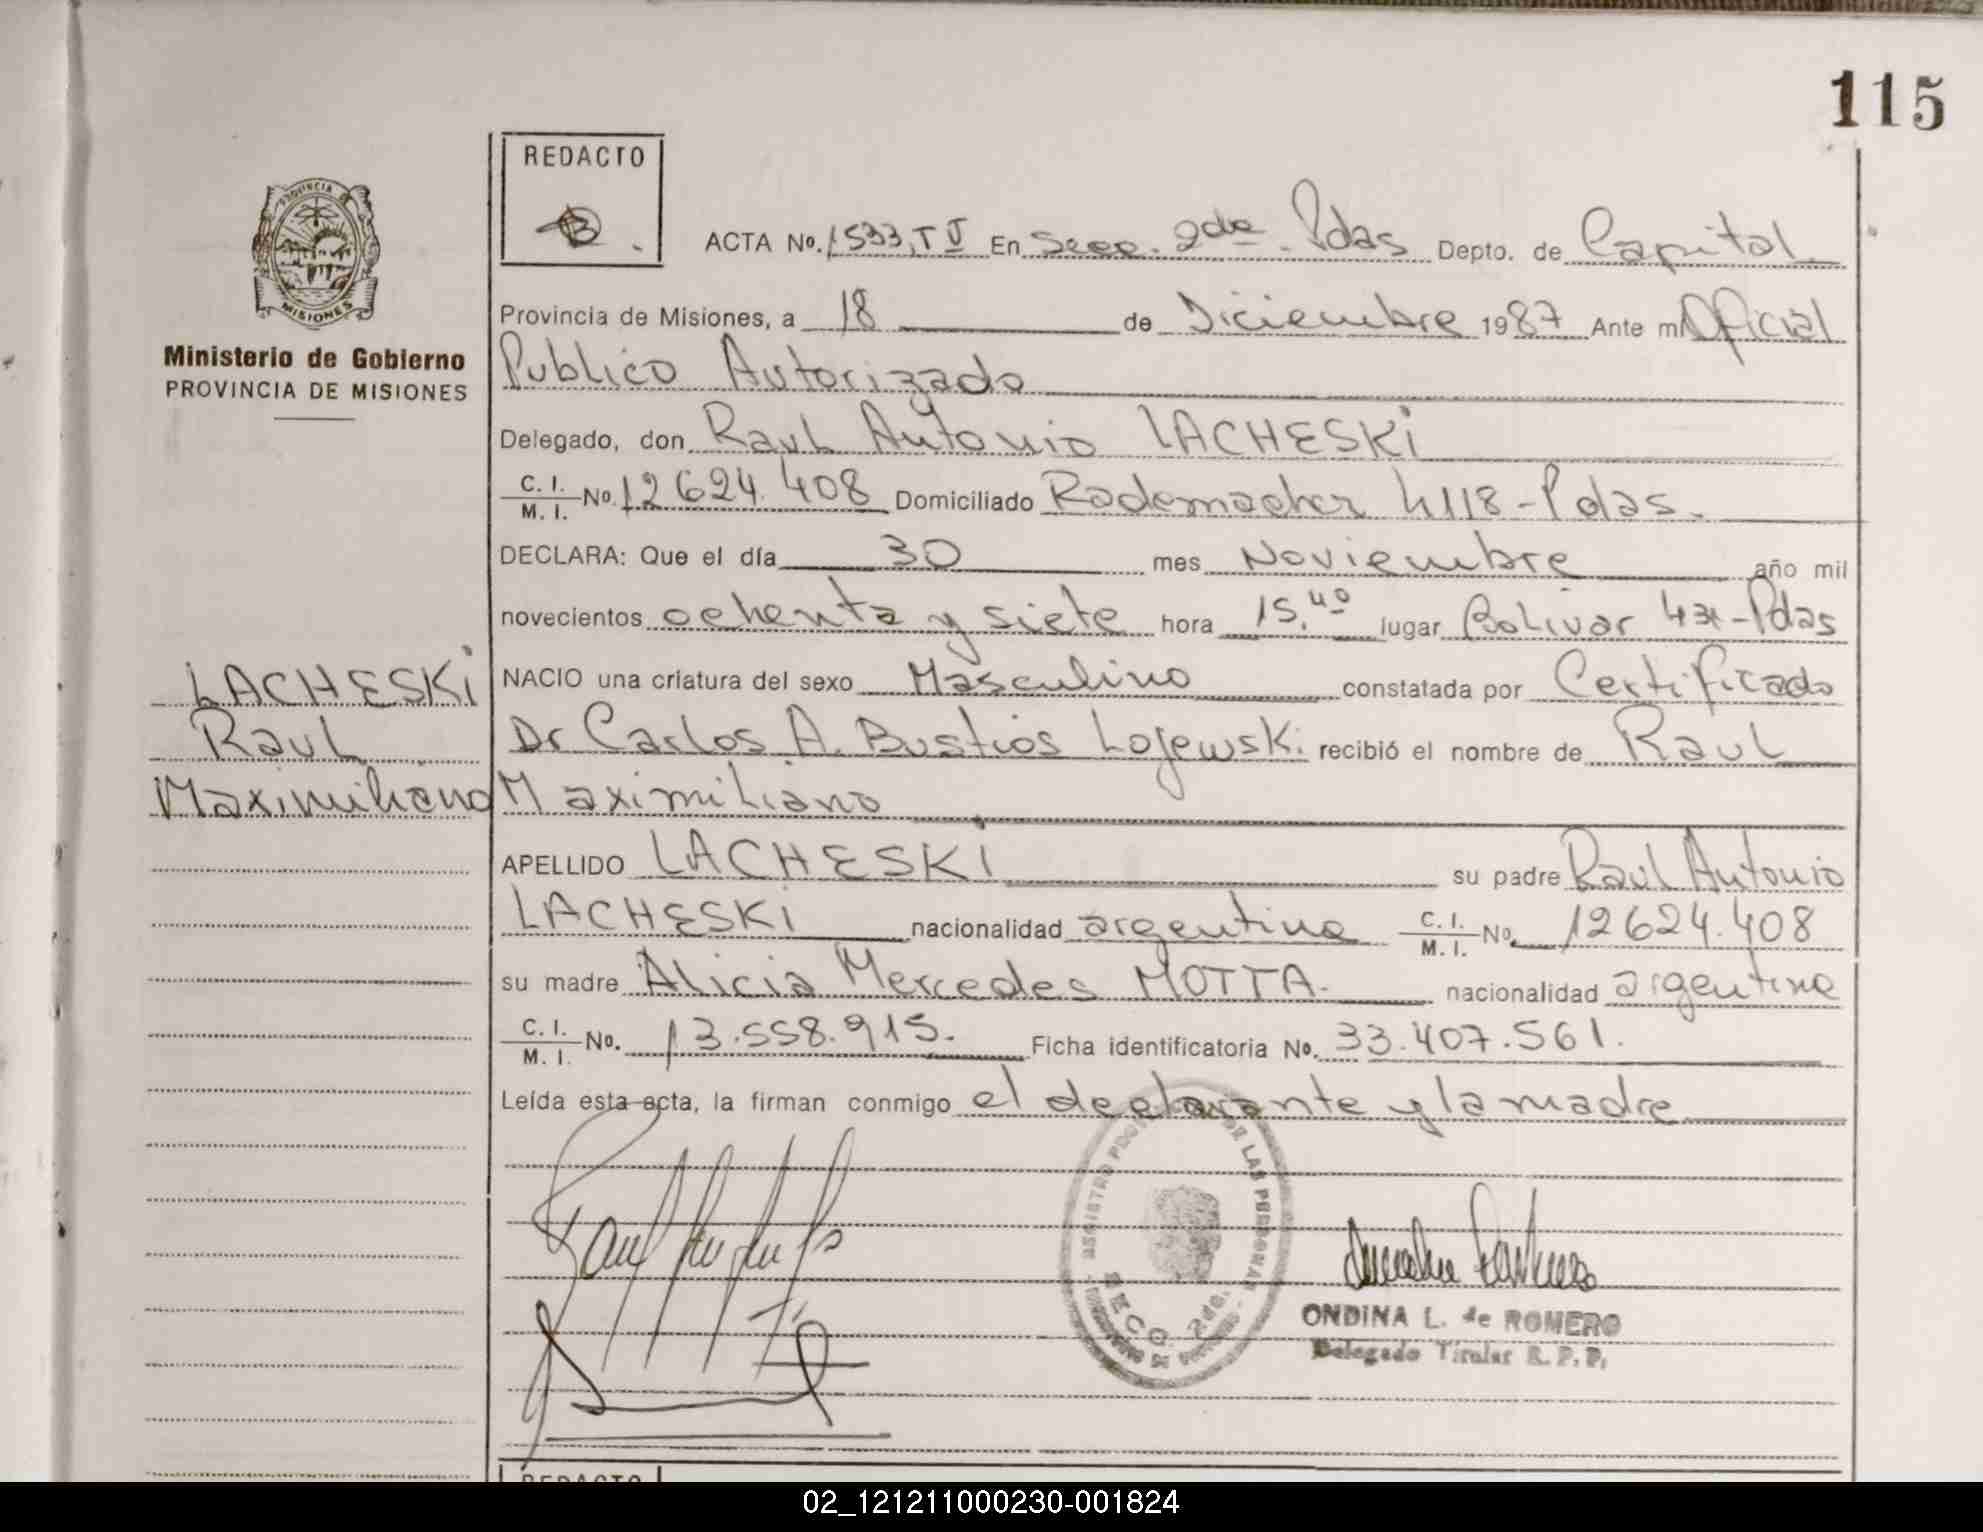 115
REDACTO
B
ACTA No. 1533, T V En Secc. 2da. Pdas Depto. de Capital
PROVINCIA DE
MISIONES
Provincia de Misiones, a 18 de Diciembre 1987 Ante mi Oficial
Ministerio de Gobierno
PROVINCIA DE MISIONES
Publico Autorizado
Delegado, don Raul Antonio LACHESKi
C. I.
M. I. No. 12624.408 Domiciliado Rademacher 4118-Pdas.
DECLARA: Que el día 30 mes Noviembre año mil
novecientos ochenta y siete hora 15.40 lugar Bolivar - Pdas
LACHESKi
Raul
Maximiliano
NACIO una criatura del sexo Masculino constatada por Certificado
Dr Carlos A. Bustios Lojewski recibió el nombre de Raul
Maximiliano
APELLIDO LACHESKi su padre Raul Antonio
LACHESKi nacionalidad argentina C. I.
M. I. No. 12624.408
su madre Alicia Mercedes MOTTA. nacionalidad argentina
C. I.
M. I. No. 13.558.915. Ficha identificatoria No. 33.407.561.
Leída esta acta, la firman conmigo el declarante y la madre
REGISTRO DE LAS PERSONAS
SECC. 2da.
ONDINA L. de ROMERO
Delegado Titular R. P. P.
REDACTO
02_121211000230-001824